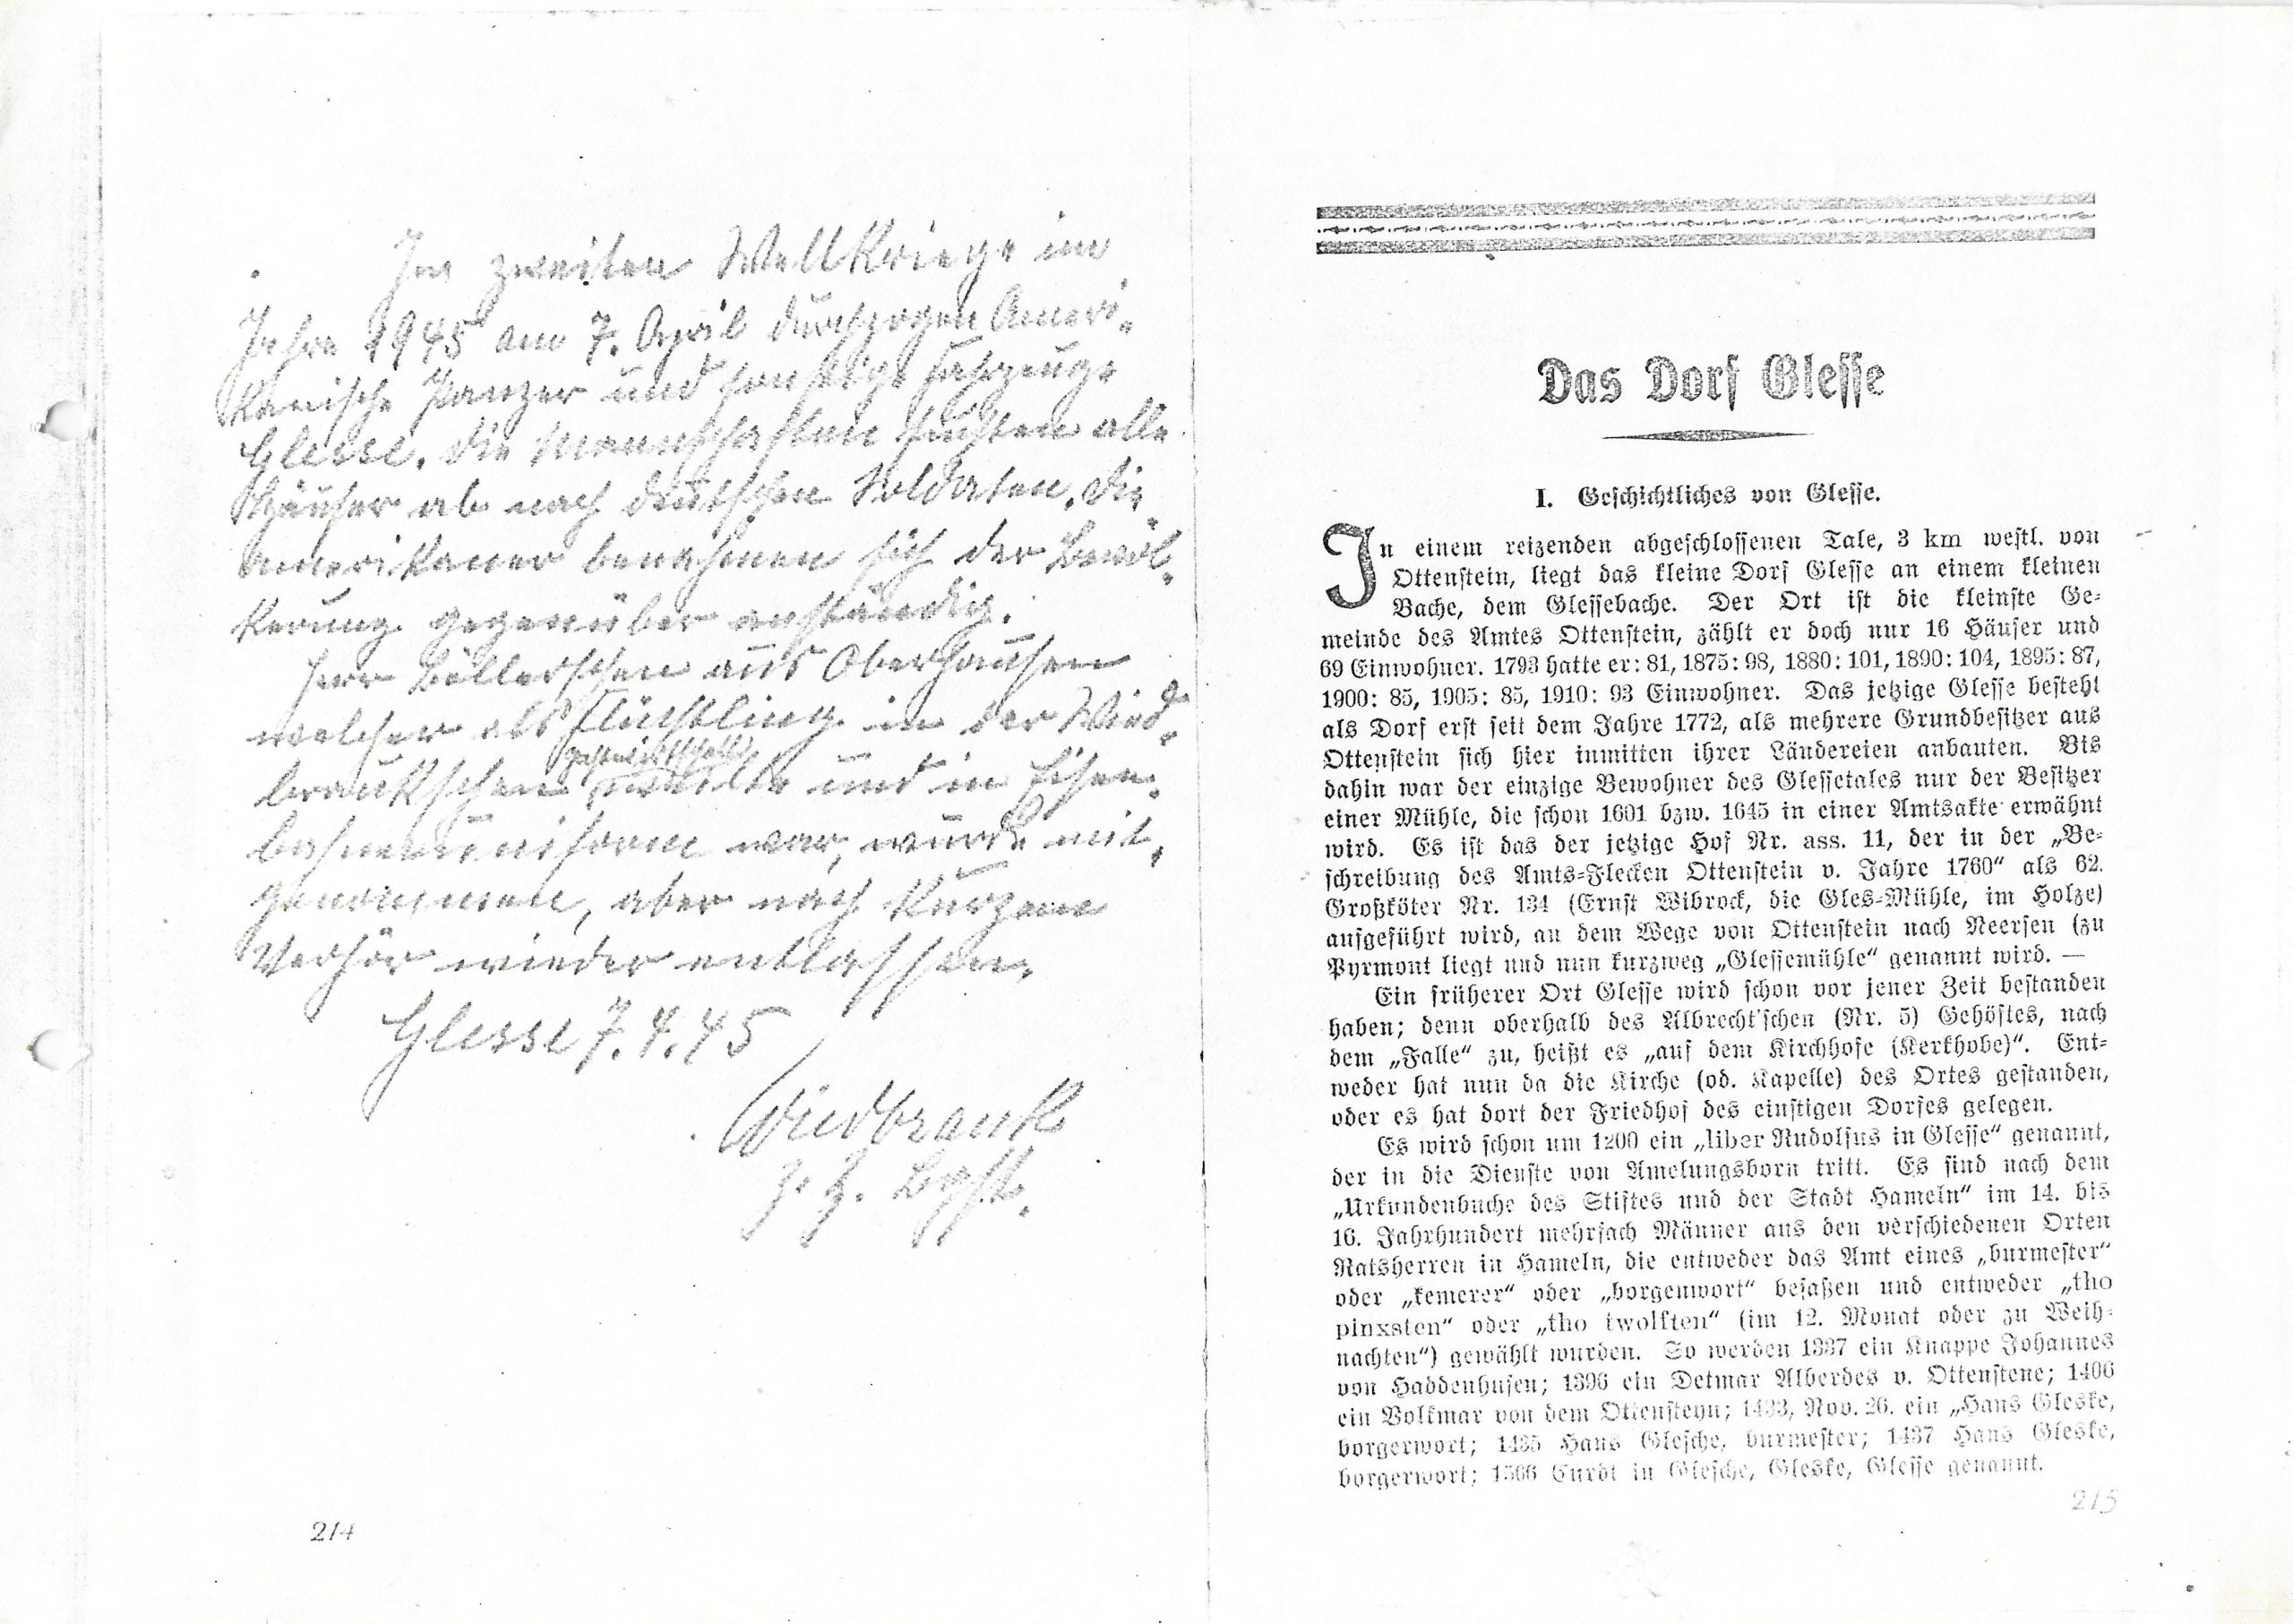 Im zweiten Weltkriege im
Jahre 1945 am 7. April durchzogen Ameri-
kanische Panzer und sonstige Fahrzeuge
Glesse. Die Mannschaften suchten alle
Häuser ab nach deutschen Soldaten. Die
Amerikaner benahmen sich der Bevöl-
kerung gegenüber anständig.
Herr Böllerschen aus Oberhausen
welcher als Flüchtling in der Wied-
Gastwirtschaft
braukschen weilte und in Eisen-
bahneruniform war, wurde mit-
genommen, aber nach kurzem
Verhör wieder entlassen.
Glesse 7.4.45
Wiedbrauk
z. Z. Bgst.
214
Das Dorf Glesse
I. Geschichtliches von Glesse.
In einem reizenden abgeschlossenen Tale, 3 km westl. von
Ottenstein, liegt das kleine Dorf Glesse an einem kleinen
Bache, dem Glessebache. Der Ort ist die kleinste Ge-
meinde des Amtes Ottenstein, zählt er doch nur 16 Häuser und
69 Einwohner. 1793 hatte er: 81, 1875: 98, 1880: 101, 1890: 104, 1895: 87,
1900: 85, 1905: 85, 1910: 93 Einwohner. Das jetzige Glesse besteht
als Dorf erst seit dem Jahre 1772, als mehrere Grundbesitzer aus
Ottenstein sich hier inmitten ihrer Ländereien anbauten. Bis
dahin war der einzige Bewohner des Glessetales nur der Besitzer
einer Mühle, die schon 1601 bzw. 1645 in einer Amtsakte erwähnt
wird. Es ist das der jetzige Hof Nr. ass. 11, der in der „Be-
schreibung des Amts-Flecken Ottenstein v. Jahre 1760“ als 62.
Großköter Nr. 134 (Ernst Wibrock, die Gles-Mühle, im Holze)
aufgeführt wird, an dem Wege von Ottenstein nach Neersen (zu
Pyrmont liegt und nun kurzweg „Glessemühle“ genannt wird. —
Ein früherer Ort Glesse wird schon vor jener Zeit bestanden
haben; denn oberhalb des Albrecht'schen (Nr. 5) Gehöftes, nach
dem „Falle“ zu, heißt es „auf dem Kirchhofe (Kerkhobe)“. Ent-
weder hat nun da die Kirche (od. Kapelle) des Ortes gestanden,
oder es hat dort der Friedhof des einstigen Dorfes gelegen.
Es wird schon um 1200 ein „liber Rudolfus in Glesse“ genannt,
der in die Dienste von Amelungsborn tritt. Es sind nach dem
„Urkundenbuche des Stiftes und der Stadt Hameln“ im 14. bis
16. Jahrhundert mehrfach Männer aus den verschiedenen Orten
Ratsherren in Hameln, die entweder das Amt eines „burmester“
oder „kemerer“ oder „borgenwort“ besaßen und entweder „tho
pinxsten“ oder „tho twolften“ (im 12. Monat oder zu Weih-
nachten“) gewählt wurden. So werden 1337 ein Knappe Johannes
von Haddenhusen; 1396 ein Detmar Alberdes v. Ottenstene; 1406
ein Volkmar von dem Ottensteyn; 1433, Nov. 26. ein „Hans Gleske,
borgerwort; 1435 Hans Glesche, burmester; 1437 Hans Gleske,
borgerwort; 1566 Curdt in Glesche, Gleske, Glesse genannt.
215